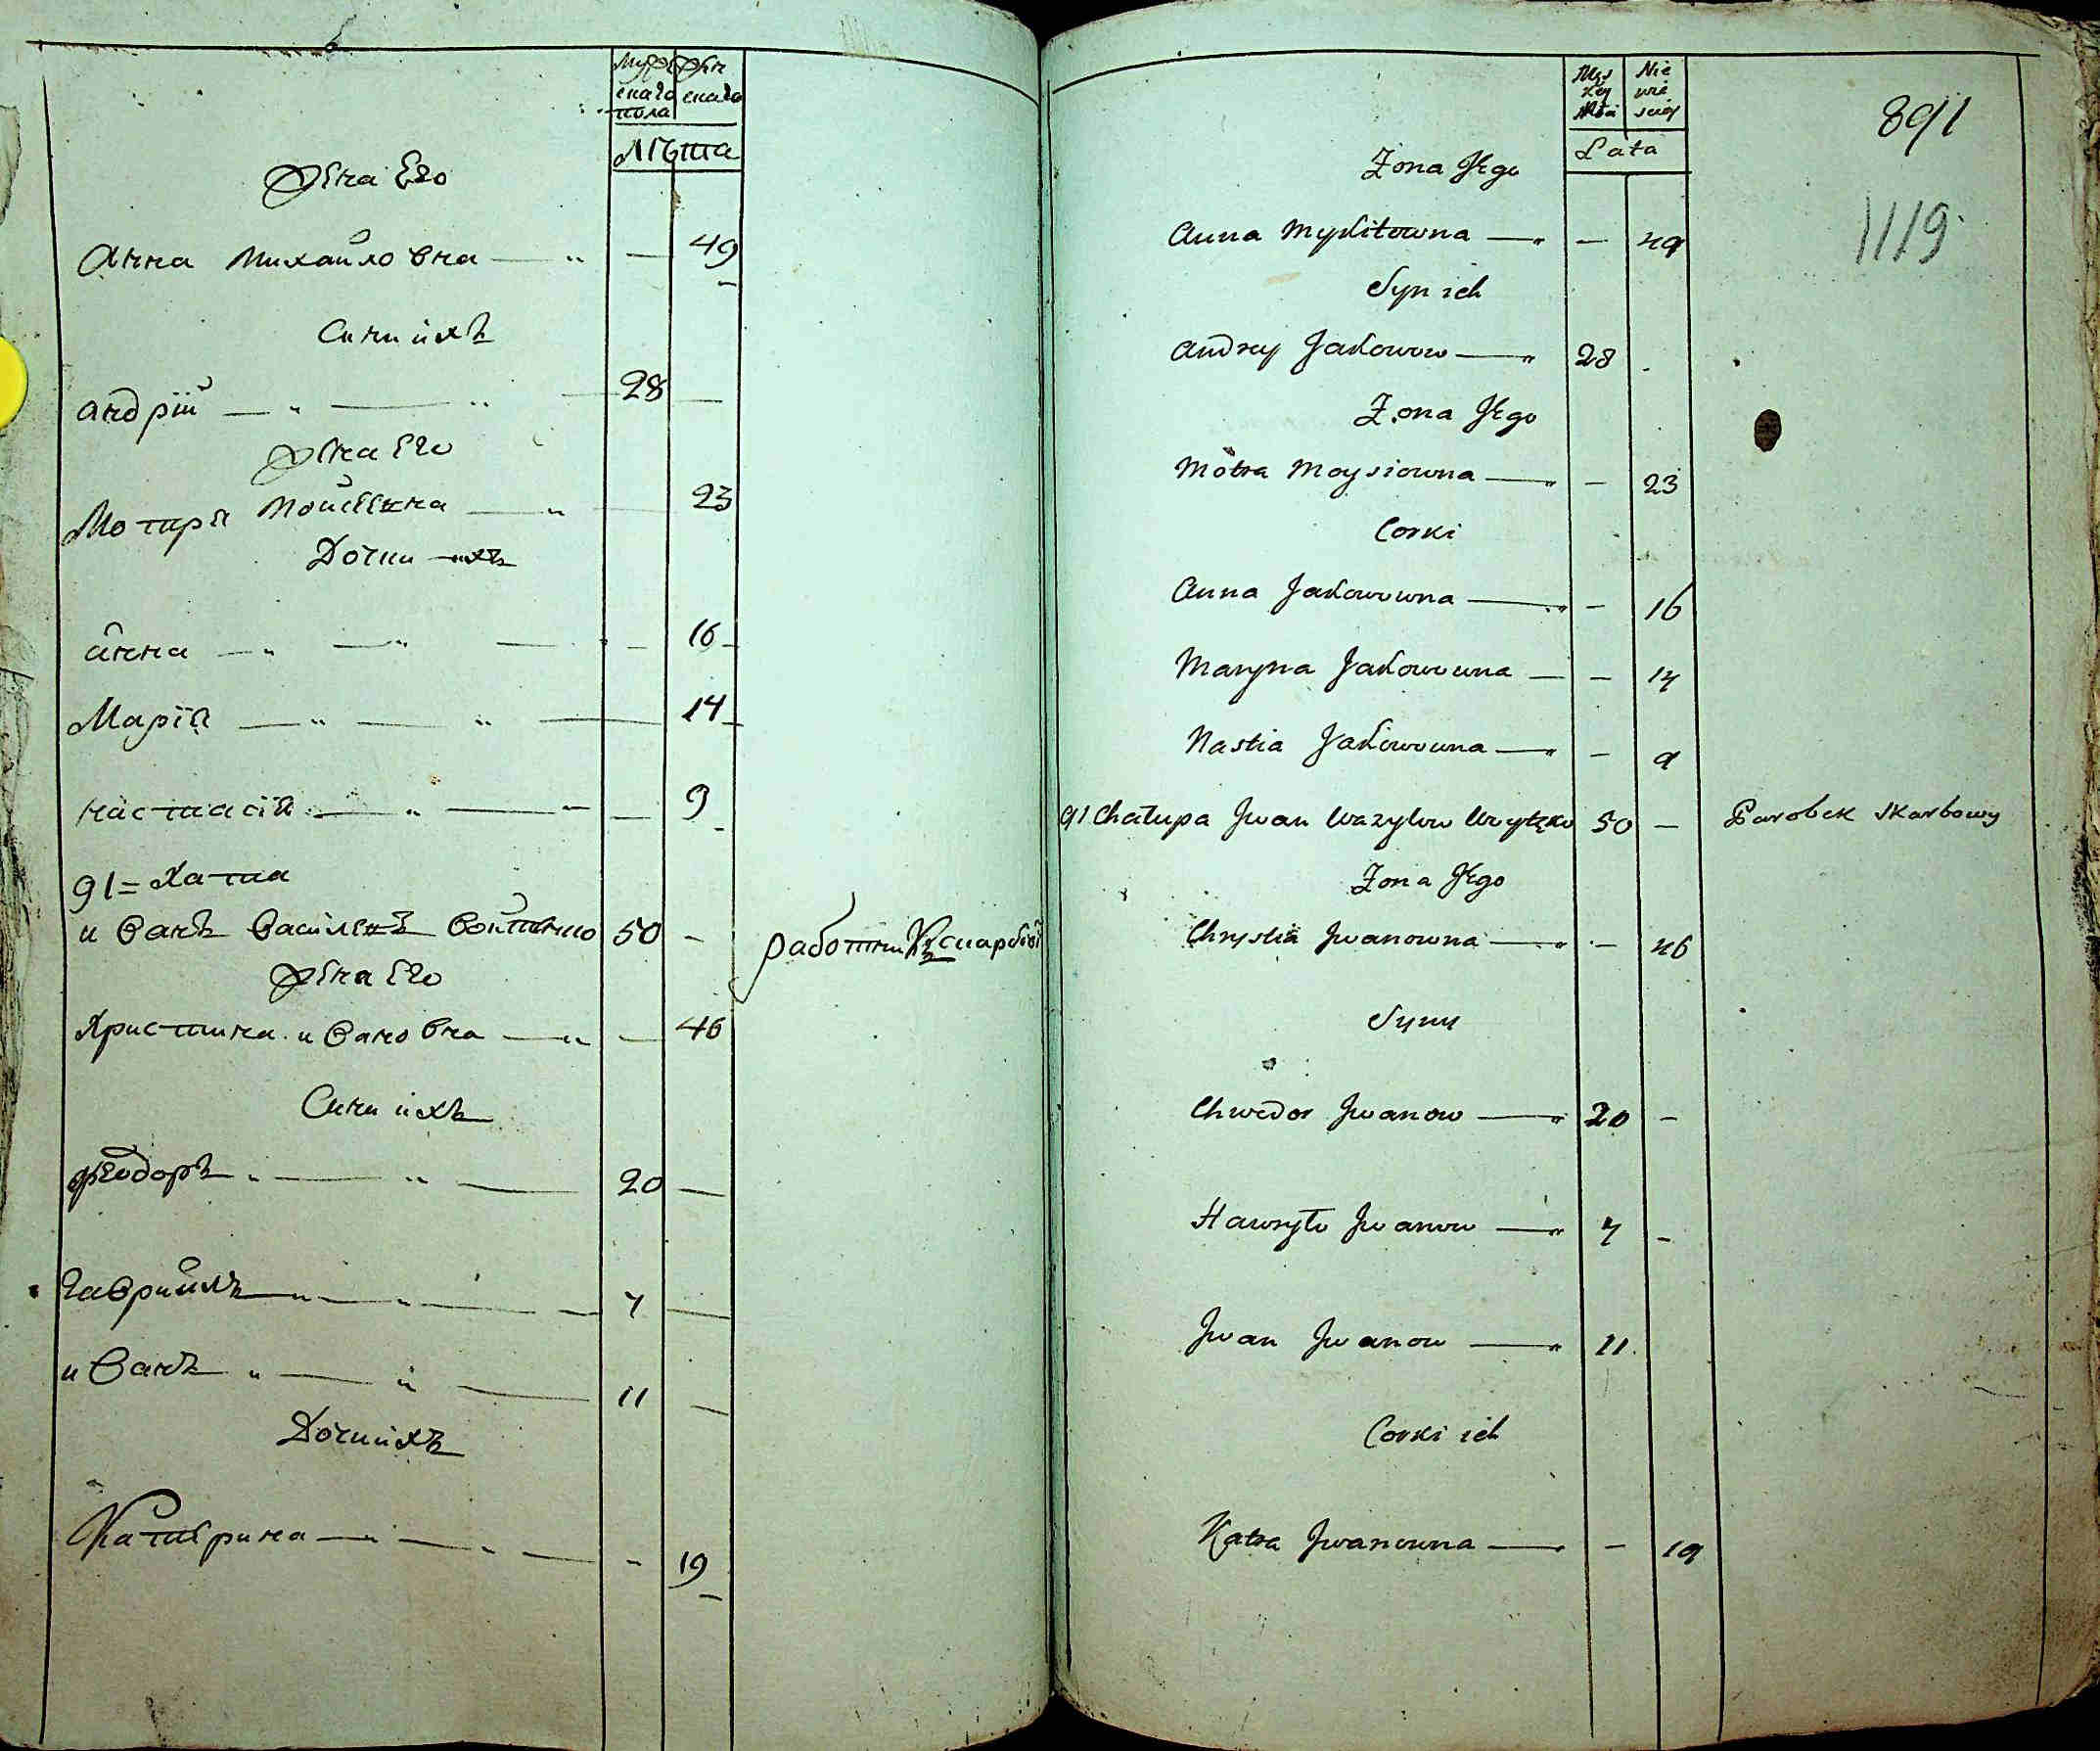 Мужескаго пола Женскаго
Лѣта
Жена Его
Анна Михайловна — 49
Сыни ихъ
Андрій 28 —
Жена Его
Мотря Мойсеева 23
Дочки ихъ
Анна — 16
Марія 14
Настасія — 9
91 = Хата
Иванъ Василевъ Войтенко 50 — работникъ скарбовій
Жена Его
Христина Ивановна — 46
Сыни ихъ
Феодоръ 20 —
Гавриилъ 7 —
Иванъ 11 —
Дочки ихъ
Катерина - 19
Męzkey Płci Niewiesciey
Lata
891
1119
Zona Jego
Anna Mykitowna — 49
Syn ich
Andrey Jakowow 28
Zona Jego
Motra Moysiowna — 23
Corki
Anna Jakowowna — 16
Maryna Jakowowna — 14
Nastia Jakowowna — 9
91 Chałupa Jwan Wazylow Woytęko 50 — Parobek Skarbowy
Zona Jego
Chrystia Jwanowna — 46
Syny
Chwedor Jwanow 20 —
Hawryło Jwanow 7 —
Jwan Jwanow 11
Corki ich
Katra Jwanowna — 19